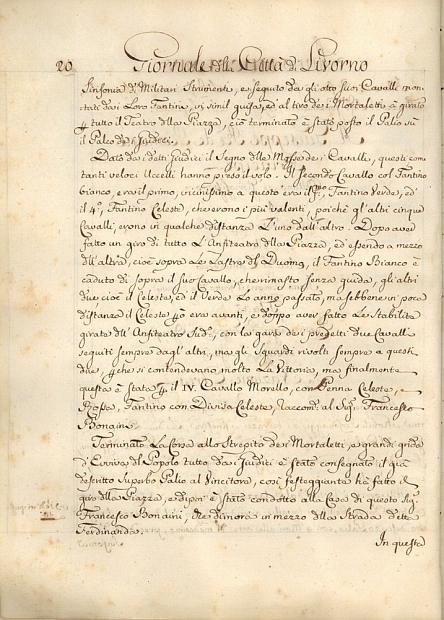 20 Giornale della Città di Livorno
Sinfonia di Militari Strumenti, e seguito da gli otto suoi Cavalli mon-
tati da i Loro Fantini, in simil guisa, ed al tiro de i Mortaletti à girato
tutto il Teatro dlla Piazza, e ciò terminato è stato posto il Palio su
il Palco de i Giudici.
Dato da i detti Giudici il Segno dlle Mosse de i Cavalli, questi com
tanti veloci Uccelli hanno preso il volo. Il secondo Cavallo col Fantino
bianco, era il primo, vicinissimo a questo era il Fantino Verde, ed
il 4º, Fantino Celeste, che erono i più valenti, poichè gl'altri cinque
Cavalli erono in qualche distanza L'uno dall'altro. Dopo aver
fatto un giro di tutto L'Anfiteatro dlla Piazza, ed essendo a mezzo
dll'altro, cioè sopra Le Lastre dl Duomo, il Fantino Bianco è
caduto di sopra il suo Cavallo, che rimasto senza guida, gli altri
due cioè il Celeste, ed il Verde Lo anno passato, ma sebbene in poca
distanza il Celeste era avanti, e doppo aver fatto Le stabilite
girate dll'Anfiteatro Sud.º, con la gara de i predetti due Cavalli
seguiti sempre dagl'altri, ma gli Sguardi rivolti sempre a questi
due, che si contendevano molto La Vittoria, ma finalmente
questa è Stata il IV. Cavallo Morello, con Penna Celeste, e
Rossa, Fantino con Divisa Celeste, raccom: al Sig. Francesco
Bonaini.
Terminato La Corsa allo Strepito de i Mortaletti, e grandi grida
d'Evviva dl Popolo tutto da i Giudici è stato consegnato il già
descritto Superbo Palio al Vincitore, così festeggiante hà fatto il
giro dlla Piazza, e dipoi è stato condotto alla Casa di questo Sig.
Francesco Bonaini, che dimora in mezzo dlla Strada detta
Ferdinanda.
In questa